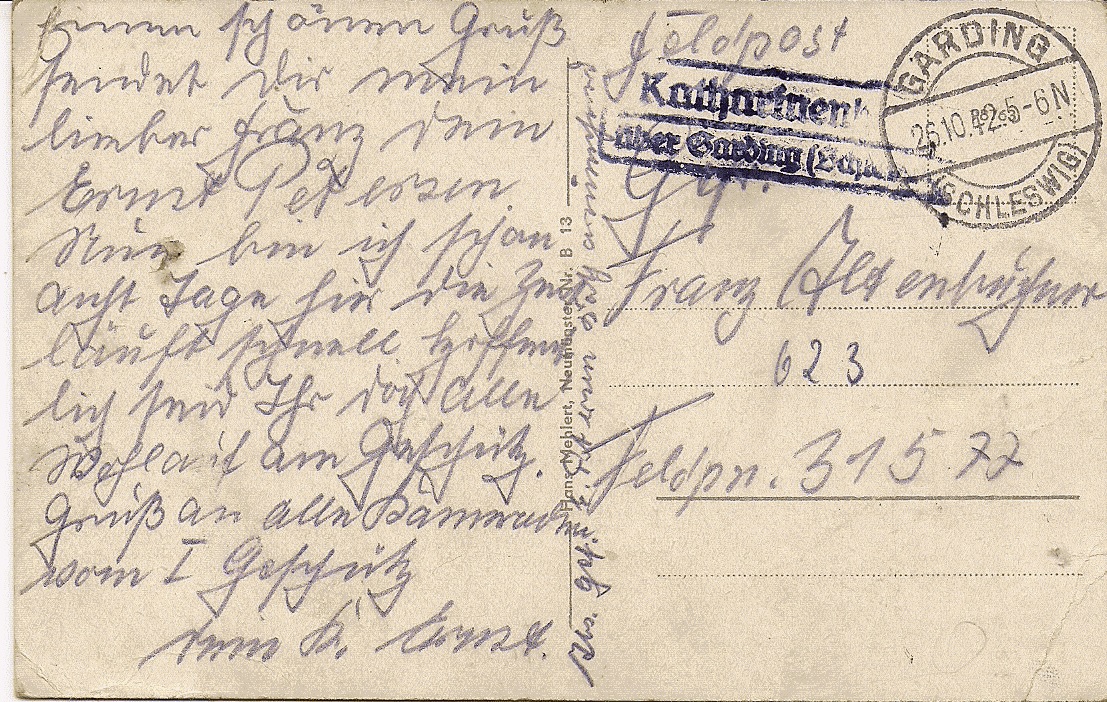 Einen schönen Gruß
sendet Dir mein
lieber Franz dein
Ernst Petersen.
Nun bin ich schon
acht Tage hier die Zeit
läuft schnell. Hoffent
lich seid Ihr doch alle
Wohlauf am Geschütz.
Gruß an alle Kameraden
vom I Geschütz
dein K. Ernst.
Hans Mehlert, Neumünster, Nr. B 13
Feldpost
Katharinenh
über Garding (Schles
GARDING
26.10.42.5-6N
(SCHLESWIG)
Gfr.
Franz Altenbuchner
623
Feldpn. 31577